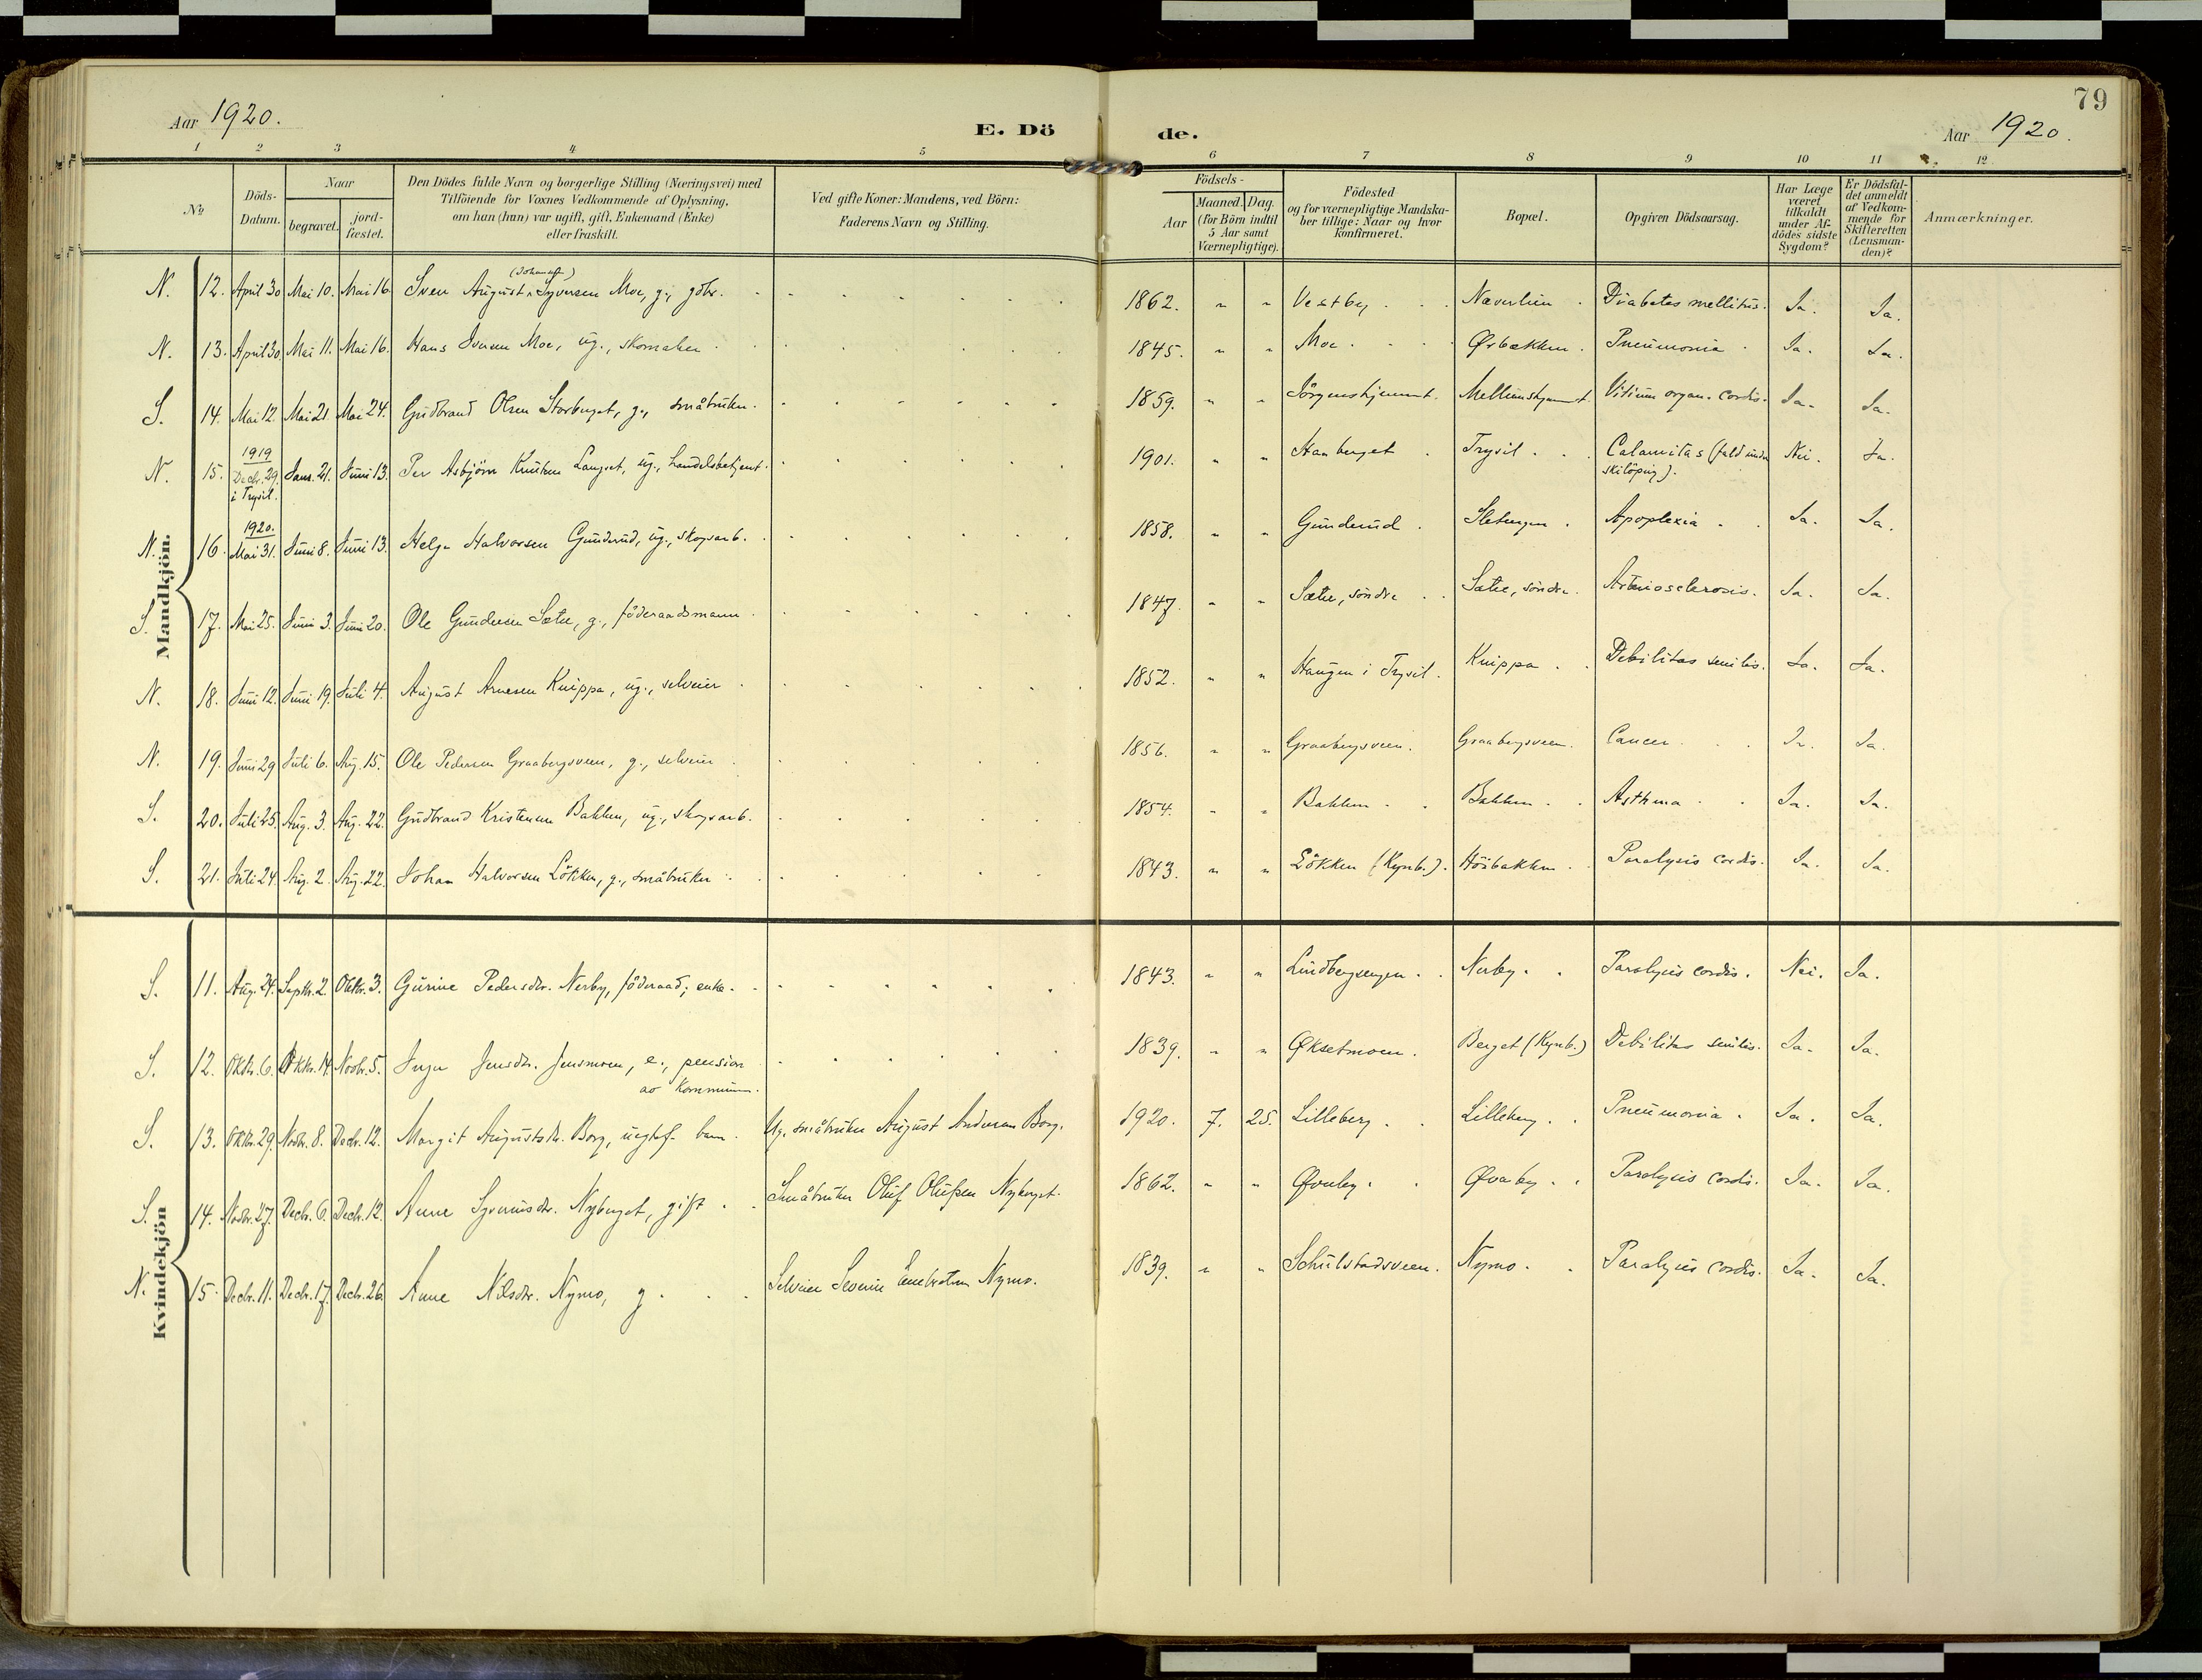 79
Aar 1920.
E. Dö de.
Aar 1920.
1 2 3 4 5 6 7 8 9 10 11 12
No
Döds-Datum.
Naar
begravet.
jord-fæstet.
Den Dödes fulde Navn og borgerlige Stilling (Næringsvei) med
Tilföiende for Voxnes Vedkommende af Oplysning,
om han (hun) var ugift, gift, Enkemand (Enke)
eller fraskilt.
Ved gifte Koner: Mandens, ved Börn:
Faderens Navn og Stilling.
Födsels-
Aar
Maaned. Dag.
(for Börn indtil
5 Aar samt
Værnepligtige).
Födested
og for værnepligtige Mandska-
ber tillige: Naar og hvor
konfirmeret.
Bopæl.
Opgiven Dödsaarsag.
Har Læge
været
tilkaldt
under Af-
dödes sidste
Sygdom?
Er Dödsfal-
det anmeldt
af Vedkom-
mende for
Skifteretten
(Lensman-
den)?
Anmærkninger.
Mandkjön.
N. 12. April 30 Mai 10. Mai 16. Sven August (Johannes) Syversen Moe, g., gdbr. 1862. " " Vestby Næverlien Diabetes mellitus. Ja. Ja.
N. 13. April 30 Mai 11. Mai 16. Hans Iversen Moe, ug., skomaker 1845. " " Moe Ørbækken. Pneumonia Ja. Ja.
S. 14. Mai 12. Mai 21. Mai 24. Gudbrand Olsen Storberget, g., småbruker. 1859. " " Jörgenshjemmet. Mellemshjemmet. Vitium organ. cordis. Ja. Ja.
N. 15. 1919 Decbr. 29. i Trysil. Jans. 21. Juni 13. Per Asbjörn Knutsen Langset, ug., handelsbetjent. 1901. " " Haaberget Trysil Calamitas (fald under skilöping). Nei. Ja.
N. 16. 1920. Mai 31. Juni 8. Juni 13. Helge Halvorsen Gunderud, ug., skogsarb. 1858. " " Gunderud Sletengen Apoplexia Ja. Ja.
S. 17. Mai 25. Juni 3. Juni 20. Ole Gundersen Sætre, g., föderaadsmann 1847. " " Sætre, söndre Sætre, söndre. Arteriosclerosis. Ja. Ja.
N. 18. Juni 12. Juni 19. Juli 4. August Arnesen Knippa, ug., selveier 1852. " " Haugen i Trysil. Knippa Debilitas senilis. Ja. Ja.
N. 19. Juni 29 Juli 6. Aug. 15. Ole Pedersen Graabergsveen, g., selveier 1856. " " Graabergsveen. Graabergsveen. Cancer. Ja. Ja.
S. 20. Juli 25. Aug. 3. Aug. 22. Gudbrand Kristensen Bakken, ug., skogsarb. 1854. " " Bakken Bakken Asthma Ja. Ja.
S. 21. Juli 24. Aug. 2. Aug. 22. Johan Halvorsen Lökken, g., småbruker 1843. " " Lökken (Kynb.). Höibakken Paralysis cordis. Ja. Ja.
Kvindekjön
S. 11. Aug. 24. Septbr. 2. Oktbr. 3. Gurine Pedersdtr. Nerby, föderaad; enke. 1843. " " Lindbergsengen Nerby. Paralysis cordis. Nei. Ja.
S. 12. Oktbr. 6. Oktbr. 14. Novbr. 5. Jensdtr. Jensmoen, e., pension av kommunen. 1839. " " Øksetmoen. Berget (Kynb.) Debilitas senilis. Ja. Ja.
S. 13. Oktbr. 29. Novbr. 8. Decbr. 12. Margit Augustsdtr. Borg, uegtef. barn. Ug. småbruker August Andersen Borg. 1920. 7. 25. Lilleberg Lilleberg Pneumonia. Ja. Ja.
S. 14. Novbr. 27. Decbr. 6. Decbr. 12. Anne Syverinsdtr. Nyberget, gift Småbruker Oluf Olufsen Nyberget. 1862. " " Øvreby. Øvreby Paralysis cordis. Ja. Ja.
N. 15. Decbr. 11. Decbr. 17. Decbr. 26. Anne Nilsdtr. Nymo, g. Selveier Severin Embretsen Nymo. 1839. " " Schulstadsveen. Nymo. Paralysis cordis. Ja. Ja.